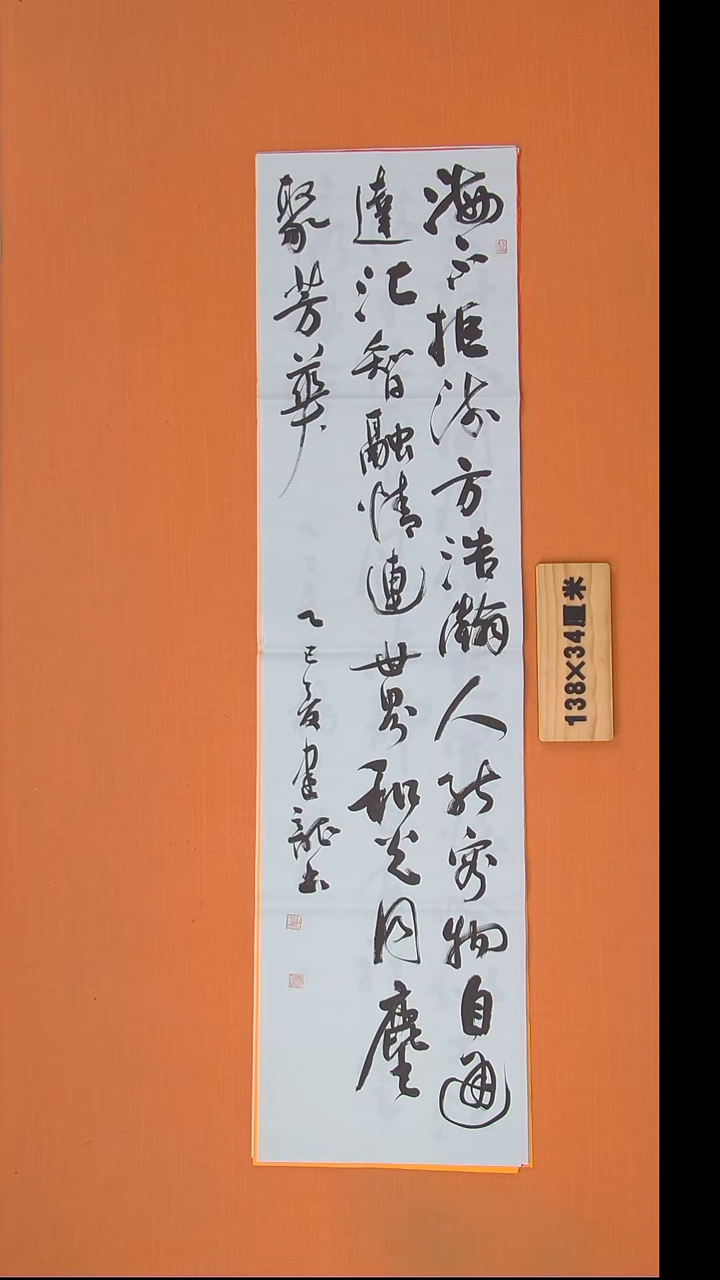 海不拒流方浩瀚人能容物自通
達汇智融情連世界和光同塵
聚芳華
乙巳夏建龍书
138×34厘米